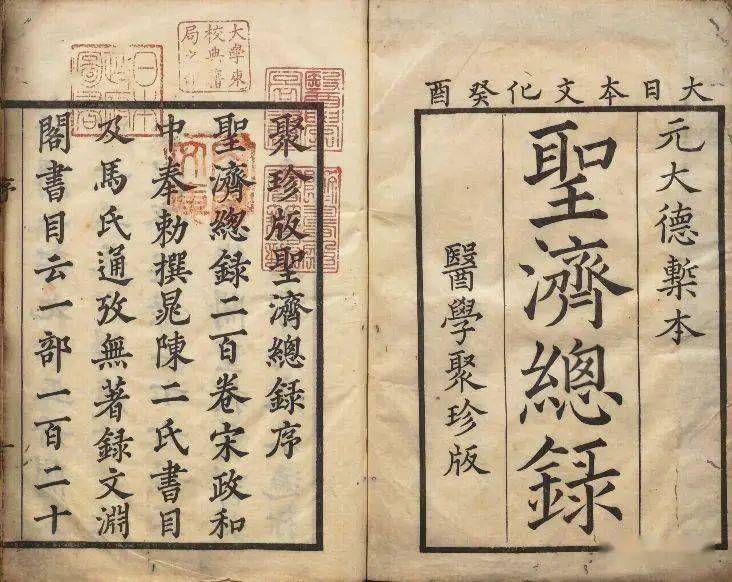 大日本文化癸酉
元大德槧本
聖濟總錄
醫學聚珍版
聚珍版聖濟總錄序
聖濟總錄二百卷宋政和
中奉勅撰晁陳二氏書目
及馬氏通攷無著錄文淵
閣書目云一部一百二十
大學東
校典書
局之印